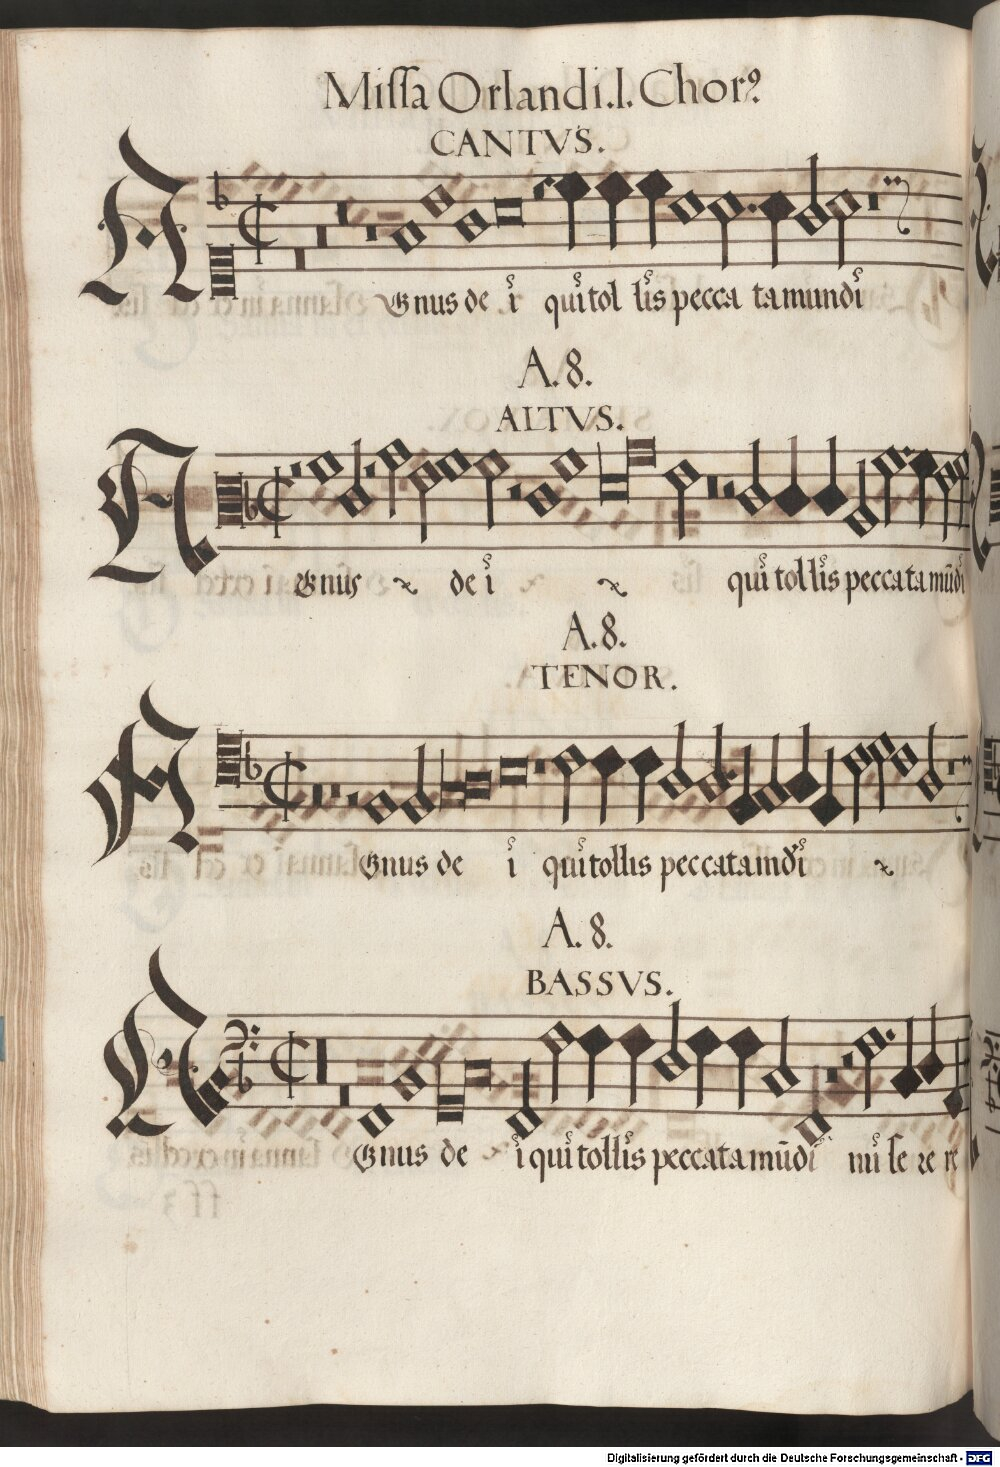 Missa Orlandi. I. Chorꝰ
CANTVS.
Agnus dei qui tollis peccata mundi
A. 8.
ALTVS.
Agnus dei qui tollis peccata mūdi
A. 8.
TENOR.
Agnus dei qui tollis peccata
A. 8.
BASSVS.
Agnus dei qui tollis peccata mūdi mise re re
Digitalisierung gefördert durch die Deutsche Forschungsgemeinschaft - DFG